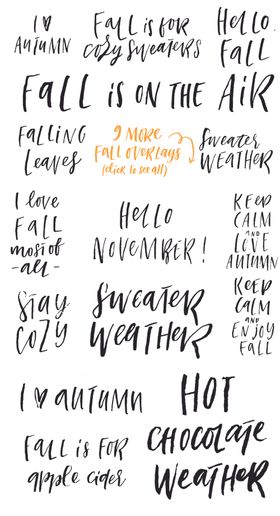 I ♥
AUTUMN
FALL is FOR
cozy sweaters
HELLO
FALL
FALL is ON THE AIR
FALLING
Leaves
9 MORE
FALL OVERLAYS
(click to see all)
Sweater
WEATHER
I love
FALL
most of
-all-
HELLO
NOVEMBER!
KEEP
CALM
AND
LOVE
AUTUMN
STAY
COZY
SWEATER
WEATHER
KEEP
CALM
AND
ENJOY
FALL
I ♥ AUTUMN
FALL is FOR
apple cider
HOT
CHOCOLATE
WEATHER